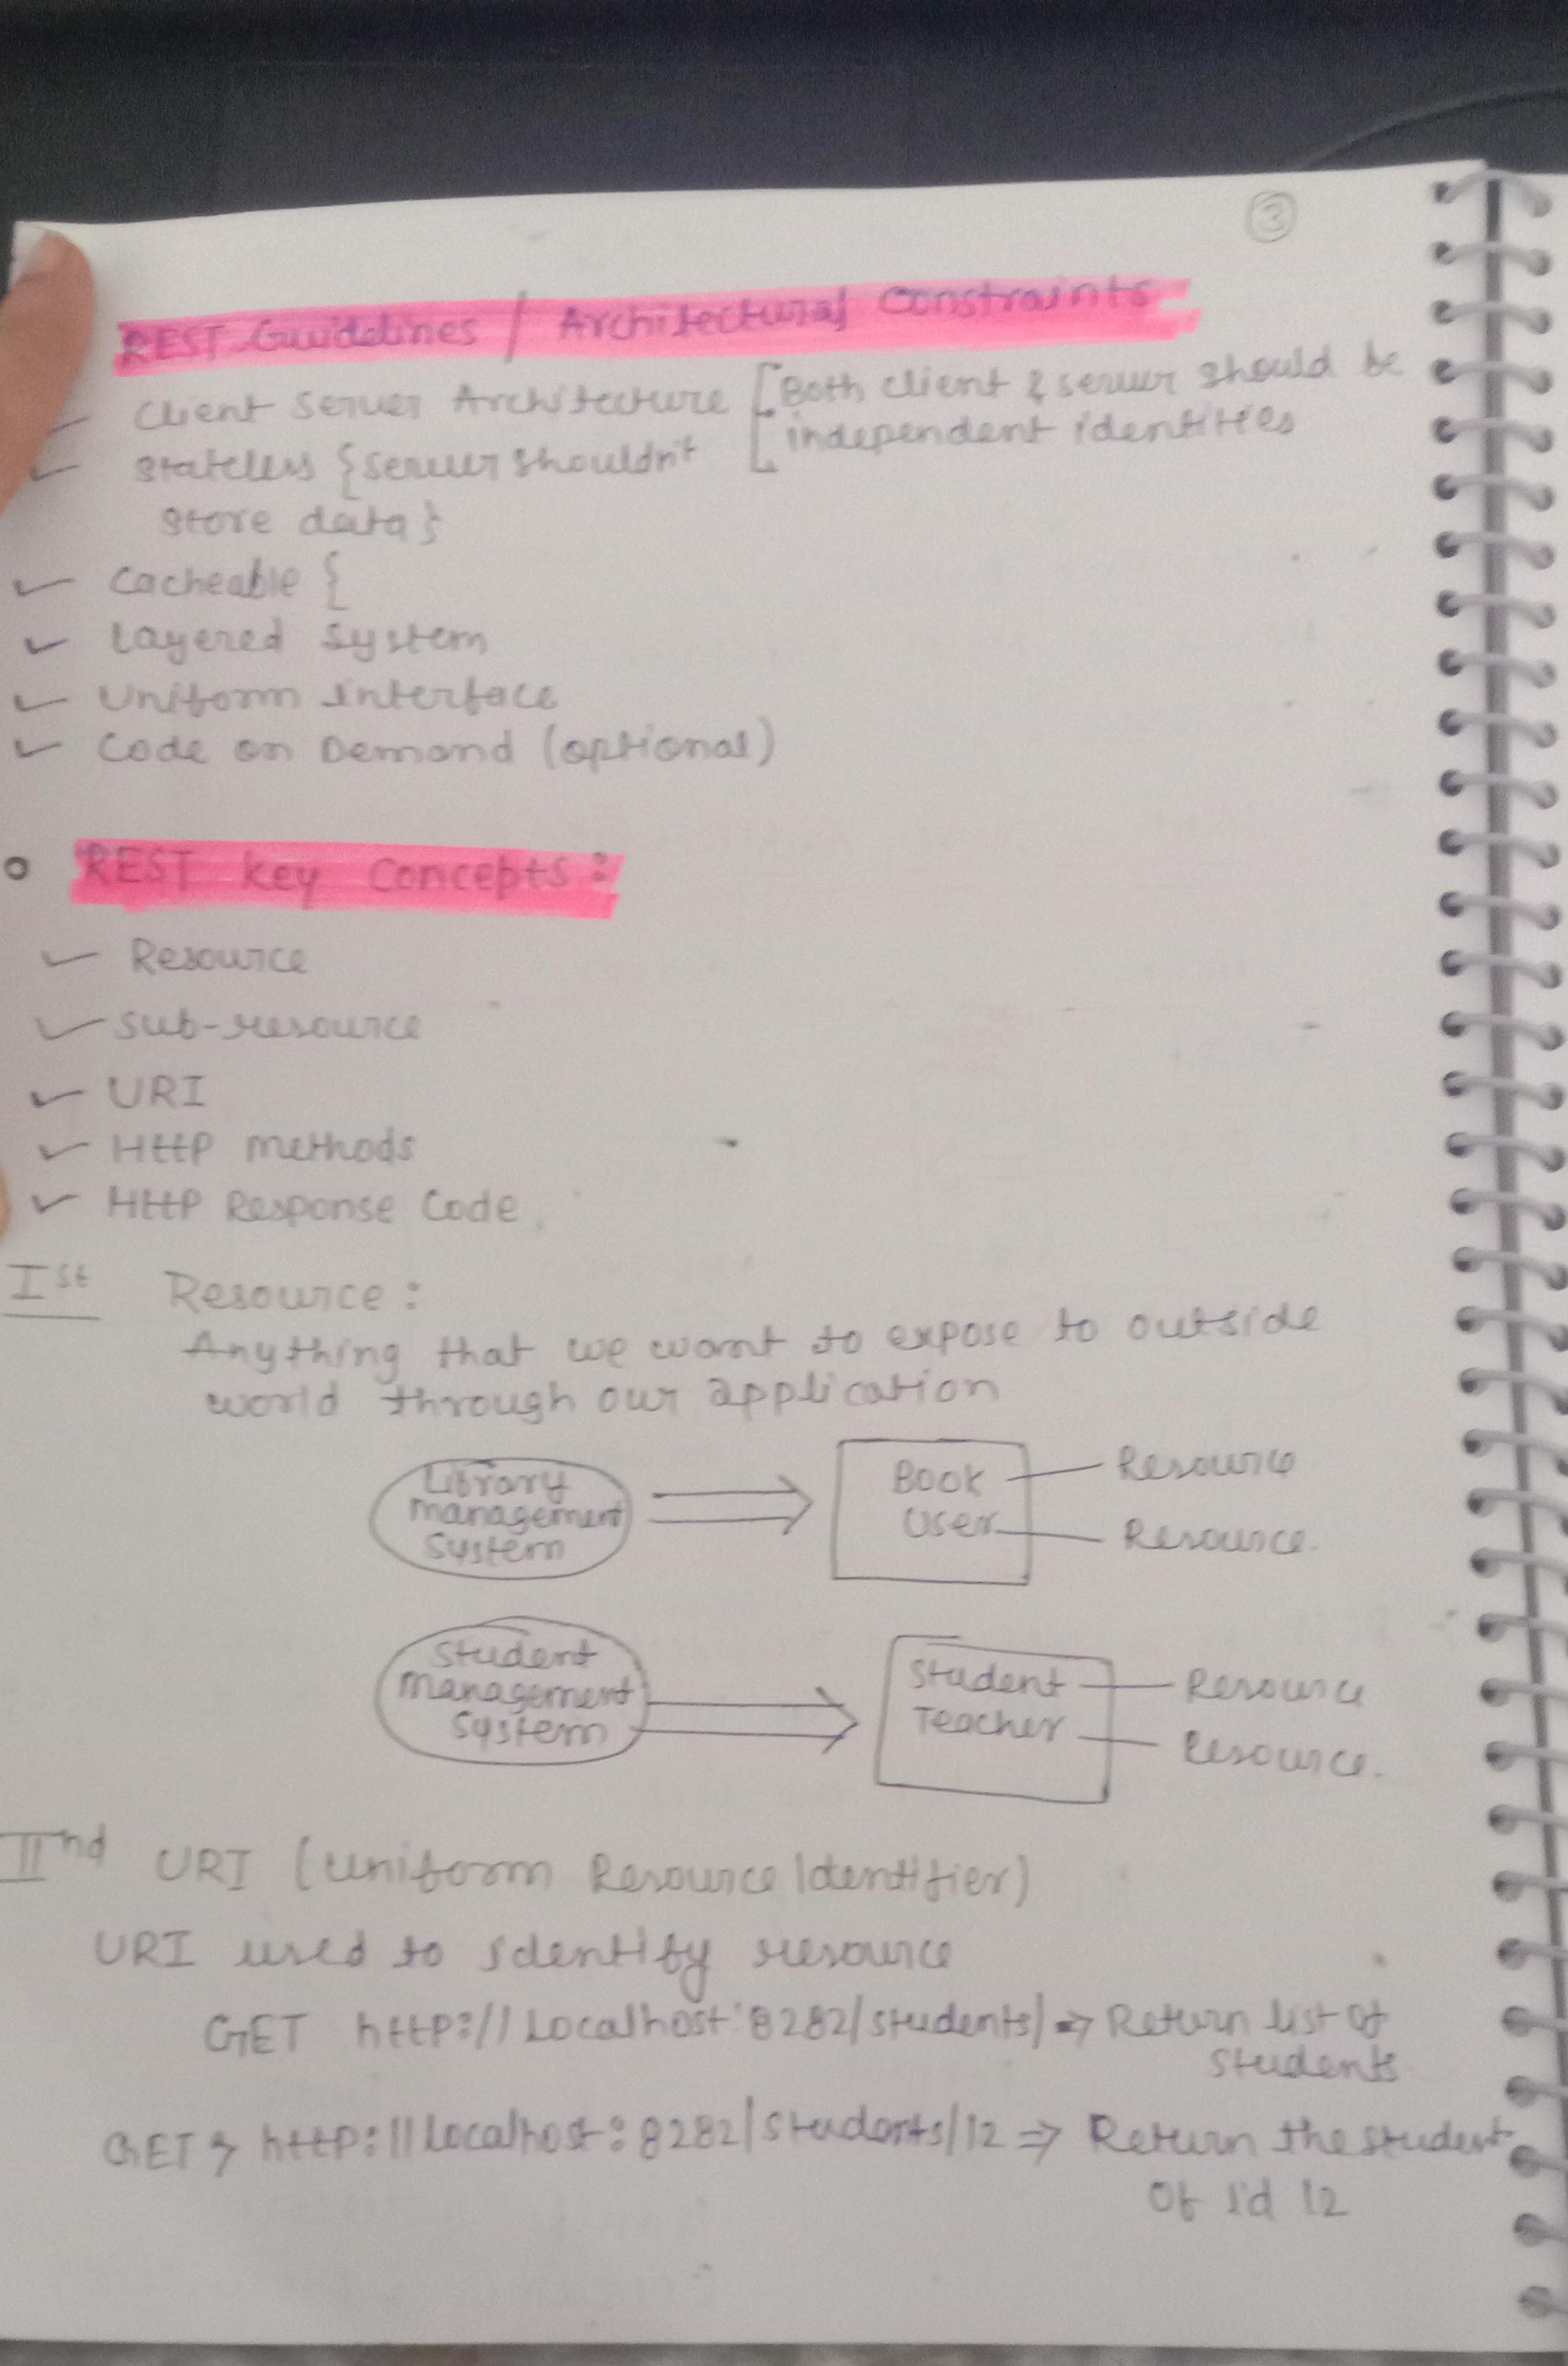 3
REST Guidelines / Architectural Constraints
✓ Client Server Architecture [Both client & server should be
independent identities
✓ Stateless {server shouldn't
store data}
✓ Cacheable {
✓ Layered System
✓ Uniform Interface
✓ Code on Demand (optional)
○ REST key Concepts:
✓ Resource
✓ Sub-resource
✓ URI
✓ Http methods
✓ Http Response Code.
Ist Resource:
Anything that we want to expose to outside
world through our application
Library
management
System
Book — Resource
User — Resource.
Student
Management
System
Student — Resource
Teacher — Resource.
IInd URI (Uniform Resource Identifier)
URI used to identify resource
GET http://Localhost:8282/students/ => Return list of
students
GET → http://localhost:8282/students/12 => Return the student
Of Id 12